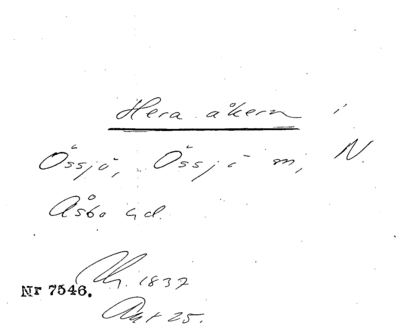 Hera åkern i
Össjö, Össjö m, N.
Åsbo hd.
Chr. 1837
Nr 7546.
Akt 25.